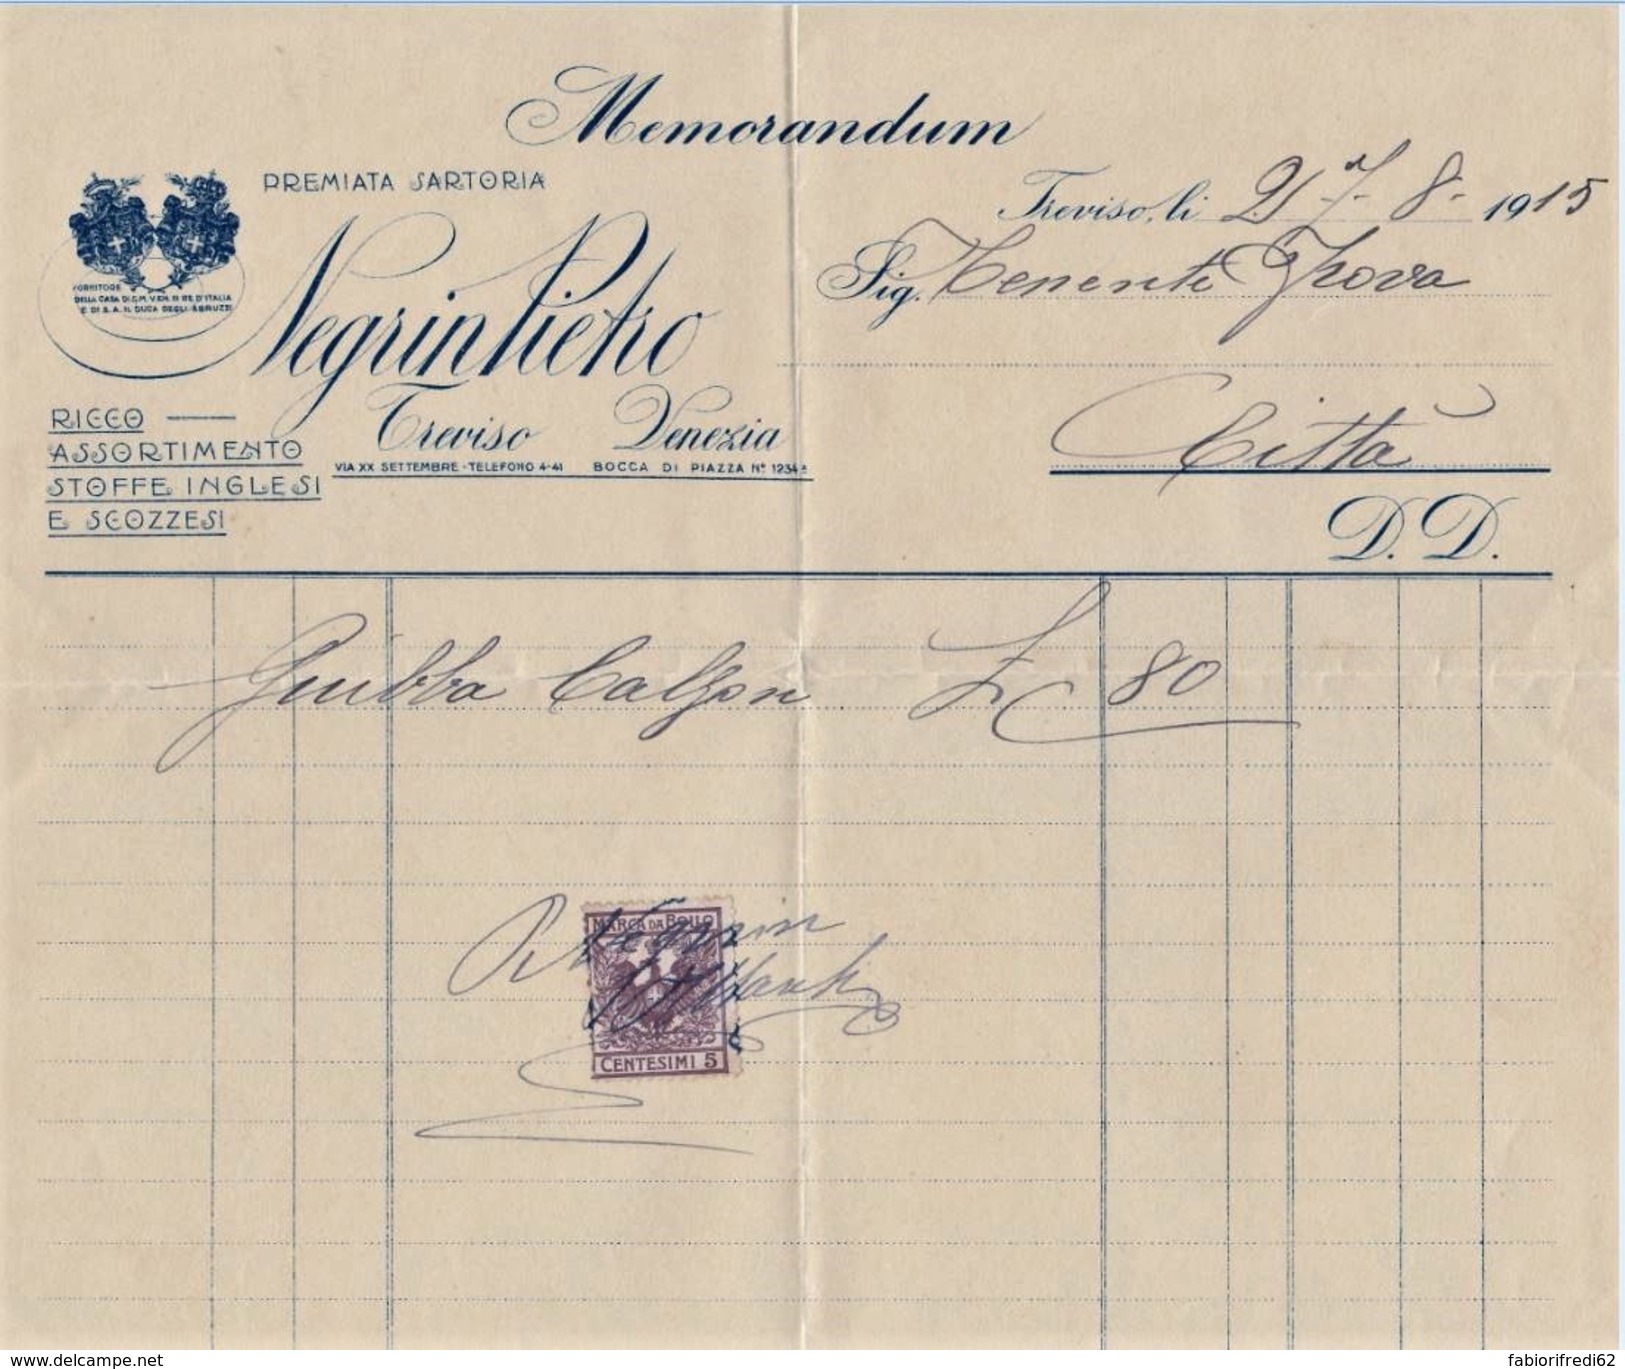 Memorandum
PREMIATA SARTORIA
Negrin Pietro
FORNITORE
DELLA CASA DI S.M. V.EM. III RE D'ITALIA
E DI S.A. IL DUCA DEGLI ABRUZZI
Treviso Venezia
VIA XX SETTEMBRE - TELEFONO 4-41 BOCCA DI PIAZZA Nº 1234A
RICCO
ASSORTIMENTO
STOFFE INGLESI
E SCOZZESI
Treviso, li 27-8-1915
Sig. Tenente Trova
Città
D. D.
Guibba Calzon £ 80
MARCA DA BOLLO
P. Negrin
CENTESIMI 5
www.delcampe.net
fabiorifredi62